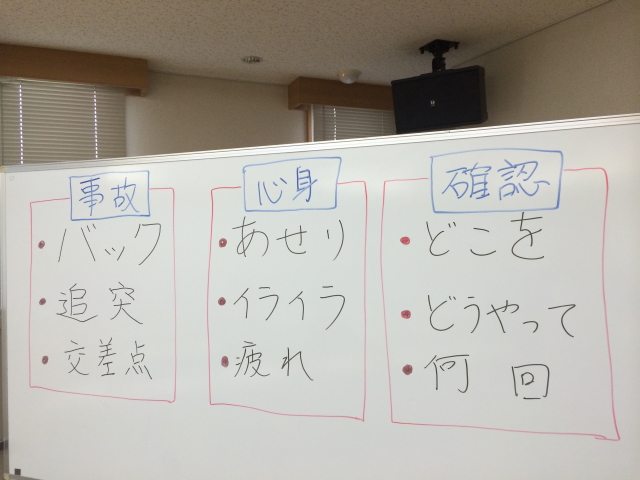 事故
・バック
・追突
・交差点
心身
・あせり
・イライラ
・疲れ
確認
・どこを
・どうやって
・何回